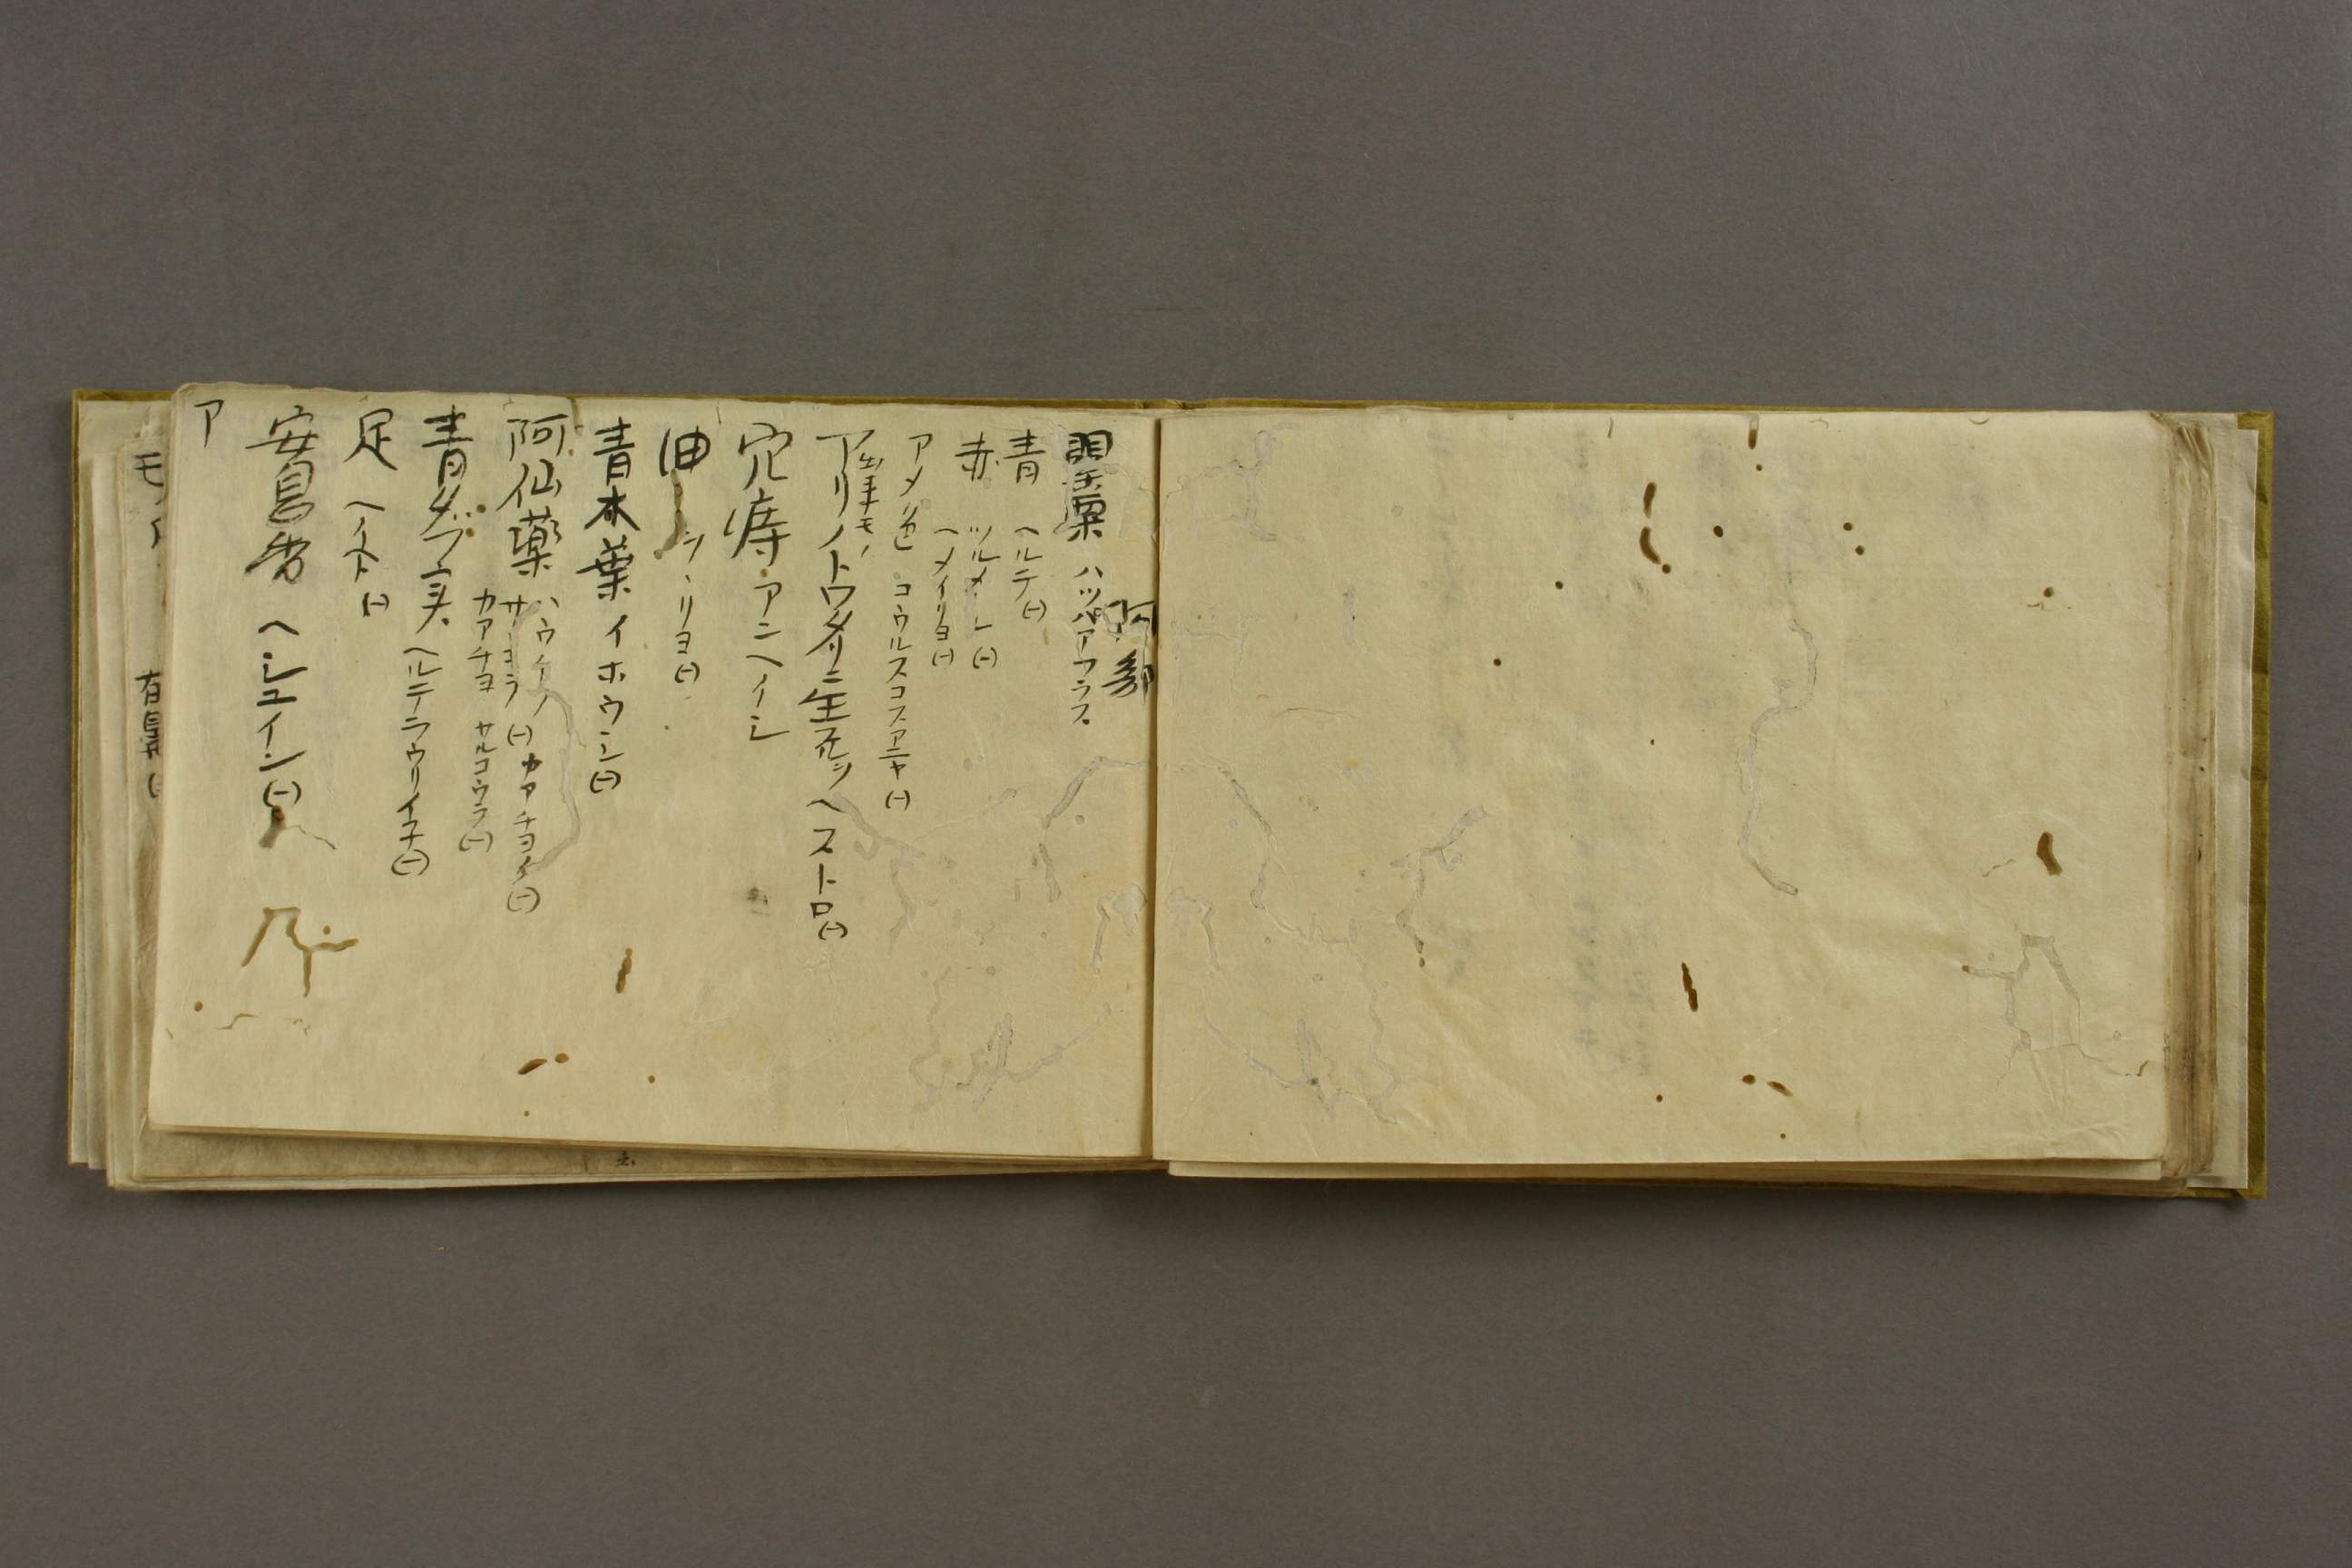 阿部
罌粟 ハッパアフラス
青 ヘルデ(一)
赤 ツルメーレ(一)
ヘメイリヨ(一)
アメ色 コウルスコスアニヤ(一)
出来モノ
アリノトウダリニ生死ッヘストロ(一)
穴痔 アンヘイシ
油 ソーリヨ(一)
青木葉 イホウシ(一)
阿仙薬 ハウイノ
サーヨラ(一) カアチヨイ(一)
カアチヨ サルコウラ(一)
青ダブ実 ヘルデラウリイ子(一)
足 ヘイト(一)
安息香 ヘシユイン(一)
ア